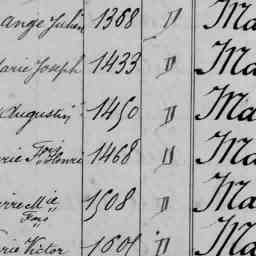 ange Julien 1368 " Ma
arie Joseph 1433 " Ma
Augustin 1450 " Ma
rie Fçs Henri 1468 " Ma
ierre Mie Fçs 1508 " Ma
rie Victor " Ma